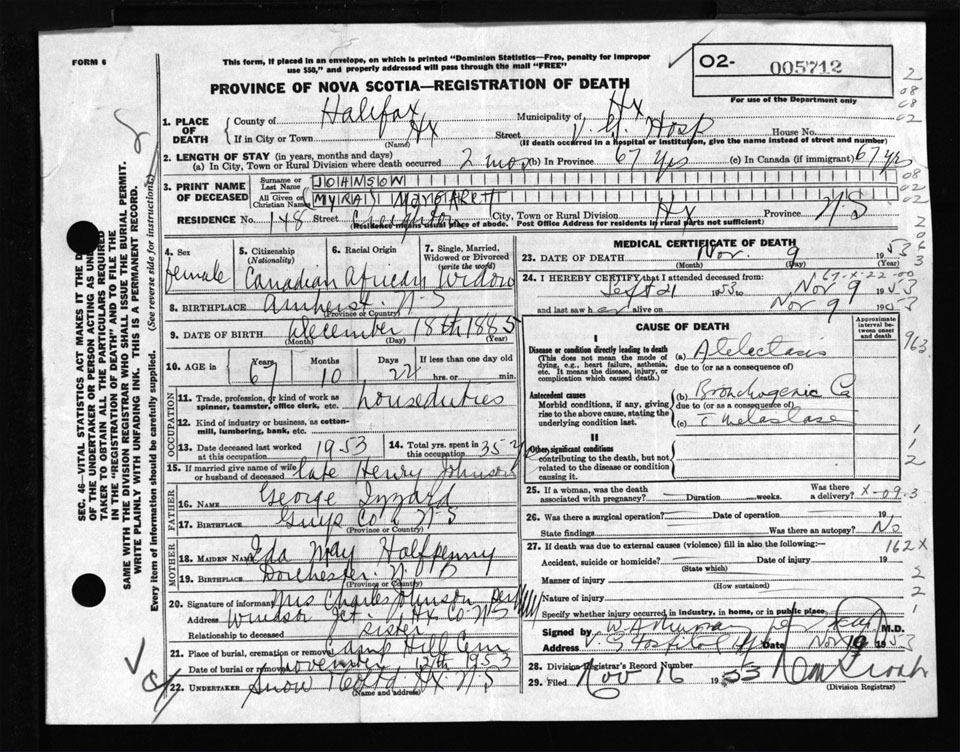 FORM 6
This form, if placed in an envelope, on which is printed "Dominion Statistics—Free, penalty for improper
use $50," and properly addressed will pass through the mail "FREE"
PROVINCE OF NOVA SCOTIA—REGISTRATION OF DEATH
02- 005712
For use of the Department only
1. PLACE OF DEATH
County of Halifax Municipality of Hx
If in City or Town Hx (Name) Street V. G. Hosp House No.
(If death occurred in a hospital or institution, give the name instead of street and number)
2. LENGTH OF STAY (in years, months and days)
(a) In City, Town or Rural Division where death occurred 2 mos (b) In Province 67 yrs (c) In Canada (if immigrant) 67 yrs
3. PRINT NAME OF DECEASED
Surname or Last Name JOHNSON
All Given or Christian Names MYRA MARGARETT
RESIDENCE No. 148 Street Creighton City, Town or Rural Division Hx Province N S
(Residence means usual place of abode. Post Office Address for residents in rural parts not sufficient)
4. Sex female
5. Citizenship (Nationality) Canadian
6. Racial Origin African
7. Single, Married, Widowed or Divorced (write the word) Widow
8. BIRTHPLACE Amherst N-S
(Province or Country)
9. DATE OF BIRTH December 18th 1885
(Month) (Day) (Year)
10. AGE in Years 67 Months 10 Days 22 If less than one day old hrs. or min.
OCCUPATION
11. Trade, profession, or kind of work as spinner, teamster, office clerk, etc. houseduties
12. Kind of industry or business, as cotton-mill, lumbering, bank, etc.
13. Date deceased last worked at this occupation 1953
14. Total yrs. spent in this occupation 35
15. If married give name of wife or husband of deceased late Henry Johnson
FATHER
16. NAME George Izzard
17. BIRTHPLACE Guys Co N-S
MOTHER
18. MAIDEN NAME Eda May Halfpenny
19. BIRTHPLACE Dorchester N B
(Province or Country)
20. Signature of informant Mrs Charles Johnson
Address Windsor Jct. Hx Co N-S
Relationship to deceased sister
21. Place of burial, cremation or removal Camp Hill Cem
Date of burial or removal November 12th 1953
22. UNDERTAKER Snow Co Ltd Hx N-S
(Name and address)
MEDICAL CERTIFICATE OF DEATH
23. DATE OF DEATH Nov. 9 1953
(Month) (Day) (Year)
24. I HEREBY CERTIFY that I attended deceased from:
Sept 21 1953 to Nov 9 1953
and last saw her alive on Nov 9 1953
CAUSE OF DEATH
Approximate interval between onset and death
I
Disease or condition directly leading to death
(This does not mean the mode of dying, e.g., heart failure, asthenia, etc. It means the disease, injury, or complication which caused death.)
(a) Atelectasis
due to (or as a consequence of)
Antecedent causes
Morbid conditions, if any, giving rise to the above cause, stating the underlying condition last.
(b) Bronchogenic Ca
due to (or as a consequence of)
(c)
II
Other significant conditions
contributing to the death, but not related to the disease or condition causing it.
25. If a woman, was the death associated with pregnancy? Duration weeks. Was there a delivery?
26. Was there a surgical operation? Date of operation 19
State findings Was there an autopsy? No
27. If death was due to external causes (violence) fill in also the following:—
Accident, suicide or homicide? Date of injury 19
(State which)
Manner of injury
(How sustained)
Nature of injury
Specify whether injury occurred in industry, in home, or in public place
Signed by M.D.
Address V. G Hospital Hx Date Nov 19 1953
28. Division Registrar's Record Number
29. Filed Nov 16 1953
(Division Registrar)
162X
963
SEC. 46—VITAL STATISTICS ACT MAKES IT THE
OF THE UNDERTAKER OR PERSON ACTING AS
TAKER TO OBTAIN ALL THE PARTICULARS REQUIRED
IN THE "REGISTRATION OF DEATH" AND TO FILE THE
SAME WITH THE DIVISION REGISTRAR WHO SHALL ISSUE THE BURIAL PERMIT.
WRITE PLAINLY WITH UNFADING INK. THIS IS A PERMANENT RECORD.
Every item of information should be carefully supplied. (See reverse side for instructions)